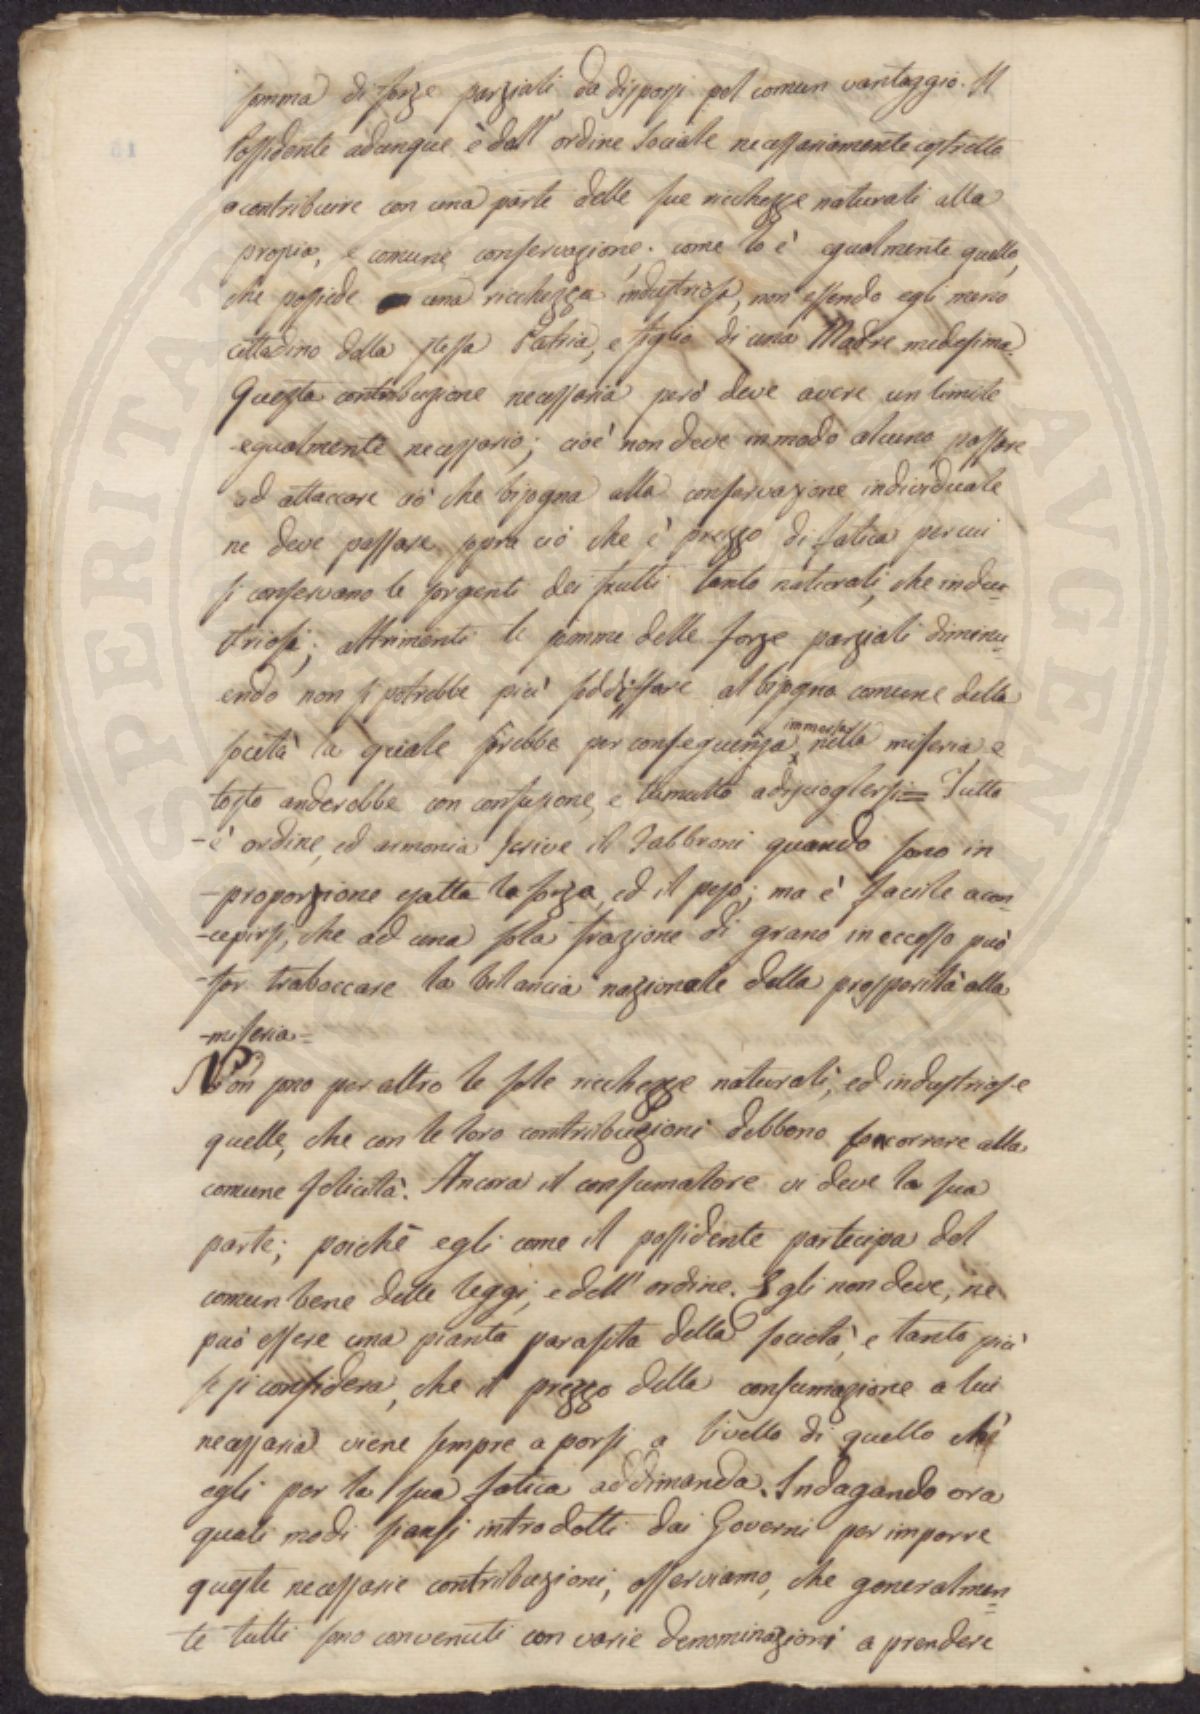 somma di forze parziali da disporsi pel comun vantaggio. Il
Possidente adunque è dall' ordine Sociale necessariamente costretto
a contribuire con una parte delle sue ricchezze naturali alla
propia, e comune conservazione. come lo è egualmente quello,
che possiede una ricchezza industriosa, non essendo egli meno
cittadino della stessa Patria, e figlio di una Madre medesima.
Questa contribuzione necessaria però deve avere un limite
egualmente necessario; cioè non deve in modo alcuno passare
ad attaccare ciò che bisogna alla conservazione individuale
ne deve passare sopra ciò che è prezzo di fatica per cui
si conservano le sorgenti dei frutti tanto naturali, che indus=
triosi; altrimenti le somme delle forze parziali diminu=
endo non si potrebbe più soddisfare al bisogno comune della
società la quale sarebbe per conseguenza immersa nella miseria e
tosto anderebbe con confusione, e tumulto a disciogliersi = Tutto
- è ordine, ed armonia scrive il Fabbroni quando sono in
- proporzione esatta la forza, ed il peso; ma è facile a con-
- cepirsi, che ad una sola frazione di grano in eccesso può
- far traboccare la bilancia nazionale della prosperità alla
- miseria =
Non sono per altro le sole ricchezze naturali, ed industriose
quelle, che con le loro contribuzioni debbono soccorrere alla
comune felicità. Ancora il consumatore vi deve la sua
parte; poichè egli come il possidente partecipa del
comun bene delle leggi, e dell' ordine. Egli non deve, nè
può essere una pianta parasita della società, e tanto più
se si considera, che il prezzo della consumazione a lui
necessaria viene sempre a porsi a livello di quello che
egli per la sua fatica addimanda. Indagando ora
quali modi siansi introdotti dai Governi per imporre
queste necessarie contribuzioni, osserviamo, che generalmen=
te tutti sono convenuti con varie denominazioni a prendere